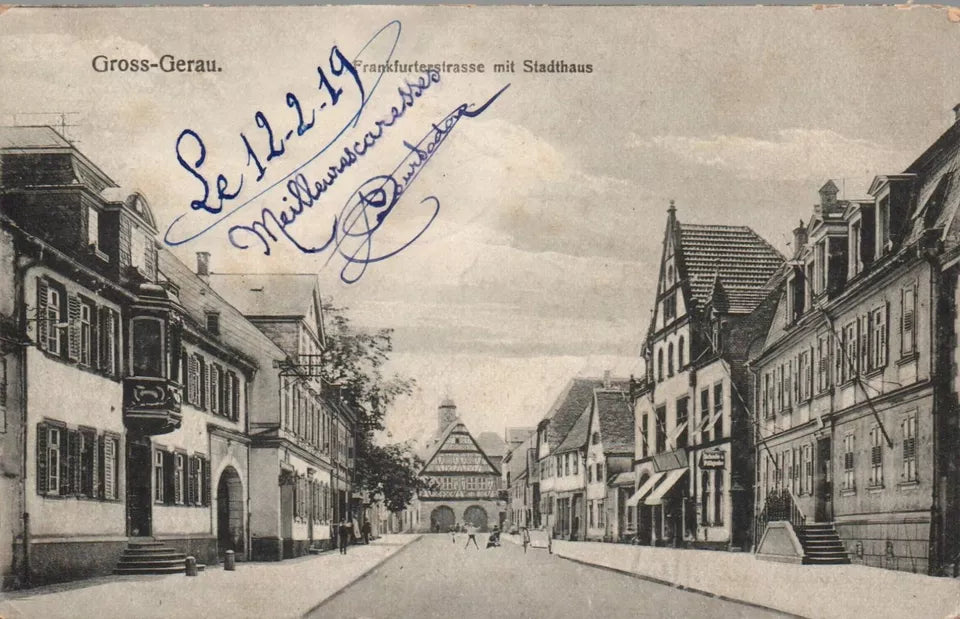 Gross-Gerau.
Frankfurterstrasse mit Stadthaus
Le 12-2-19
Meilleures caresses